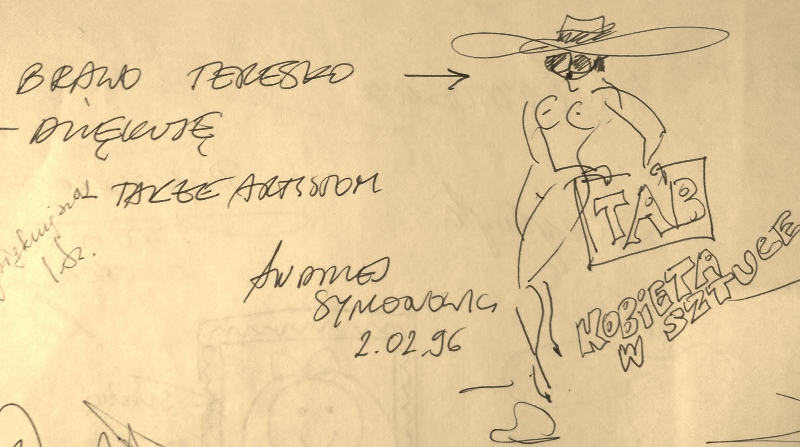 BRAWO TERESKO
- DZIĘKUJĘ
TAKŻE ARTYSTOM
ANDRZEJ
SYMONOWICZ
2.02.96
TAB
KOBIETA
W SZTUCE